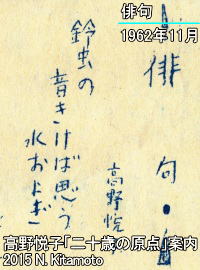 俳句
1962年11月
俳句・
高野悦
鈴虫の
音きけば思う
水およぎ
高野悦子「二十歳の原点」案内
2015 N. Kitamoto